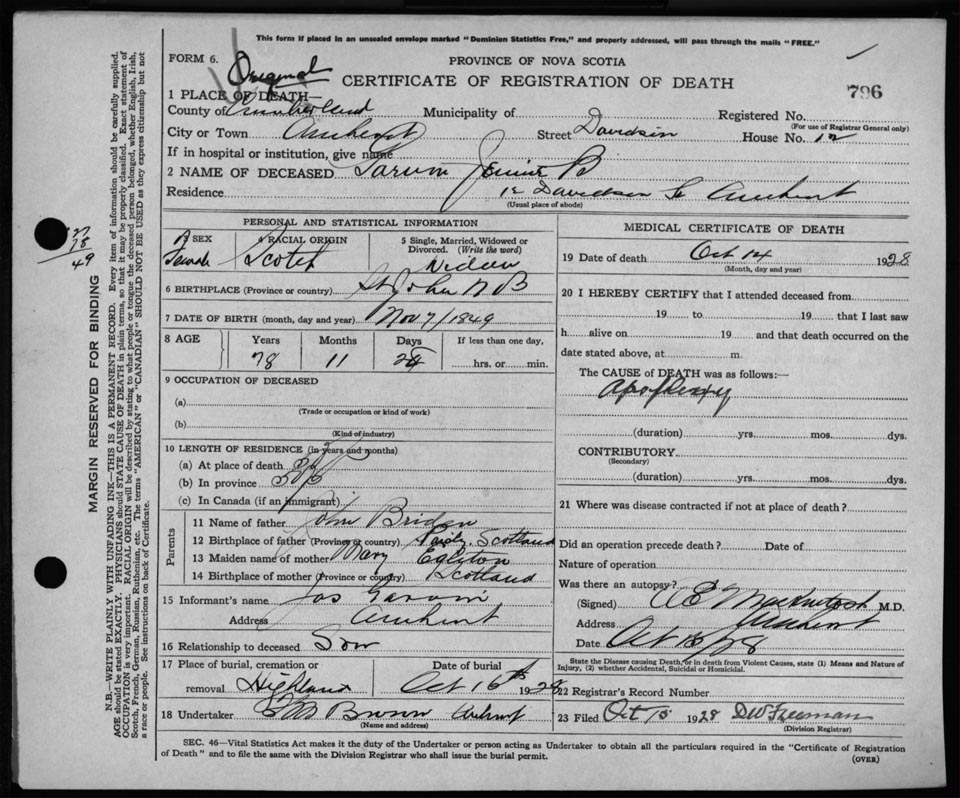 This form if placed in an unsealed envelope marked "Dominion Statistics Free," and properly addressed, will pass through the mails "FREE."
FORM 6.
Original
PROVINCE OF NOVA SCOTIA
CERTIFICATE OF REGISTRATION OF DEATH
796
1 PLACE OF DEATH—
County of Cumberland Municipality of Registered No.
(For use of Registrar General only)
City or Town Amherst Street Davidson House No. 12
If in hospital or institution, give name
2 NAME OF DECEASED Jennie B
Residence 12 Davidson St Amherst
(Usual place of abode)
PERSONAL AND STATISTICAL INFORMATION
3 SEX 4 RACIAL ORIGIN 5 Single, Married, Widowed or Divorced. (Write the word)
Female Scotch Widow
6 BIRTHPLACE (Province or country) St John N B
7 DATE OF BIRTH (month, day and year) Nov 7/1849
8 AGE Years Months Days If less than one day,
78 11 hrs. or min.
9 OCCUPATION OF DECEASED
(a)
(Trade or occupation or kind of work)
(b)
(Kind of industry)
10 LENGTH OF RESIDENCE (in years and months)
(a) At place of death
(b) In province
(c) In Canada (if an immigrant)
Parents
11 Name of father John
12 Birthplace of father (Province or country) Scotland
13 Maiden name of mother Mary
14 Birthplace of mother (Province or country) Scotland
15 Informant's name Jas
Address Amherst
16 Relationship to deceased Son
17 Place of burial, cremation or removal Highland
Date of burial Oct 16th 1928
18 Undertaker Amherst
(Name and address)
MEDICAL CERTIFICATE OF DEATH
19 Date of death Oct 14 1928
(Month, day and year)
20 I HEREBY CERTIFY that I attended deceased from
19 to 19 that I last saw
h alive on 19 and that death occurred on the
date stated above, at m.
The CAUSE of DEATH was as follows:—
Apoplexy
(duration) yrs. mos. dys.
CONTRIBUTORY
(Secondary)
(duration) yrs. mos. dys.
21 Where was disease contracted if not at place of death?
Did an operation precede death? Date of
Nature of operation
Was there an autopsy?
(Signed) Mackintosh M.D.
Address Amherst
Date Oct
State the Disease causing Death, or in death from Violent Causes, state (1) Means and Nature of Injury, (2) whether Accidental, Suicidal or Homicidal.
22 Registrar's Record Number
23 Filed Oct 15 1928 D W Freeman
(Division Registrar)
SEC. 46—Vital Statistics Act makes it the duty of the Undertaker or person acting as Undertaker to obtain all the particulars required in the "Certificate of Registration
of Death" and to file the same with the Division Registrar who shall issue the burial permit.
(OVER)
27
78
49
MARGIN RESERVED FOR BINDING
N.B.—WRITE PLAINLY WITH UNFADING INK—THIS IS A PERMANENT RECORD. Every item of information should be carefully supplied.
AGE should be stated EXACTLY. PHYSICIANS should STATE CAUSE OF DEATH in plain terms, so that it may be properly classified. Exact statement of
OCCUPATION is very important. RACIAL ORIGIN will be described by stating to what people or tongue the deceased person belonged, whether English, Irish,
Scotch, French, German, Russian, Ruthenian, etc. The terms "AMERICAN" or "CANADIAN" SHOULD NOT BE USED as they express citizenship but not
a race or people. See instructions on back of Certificate.